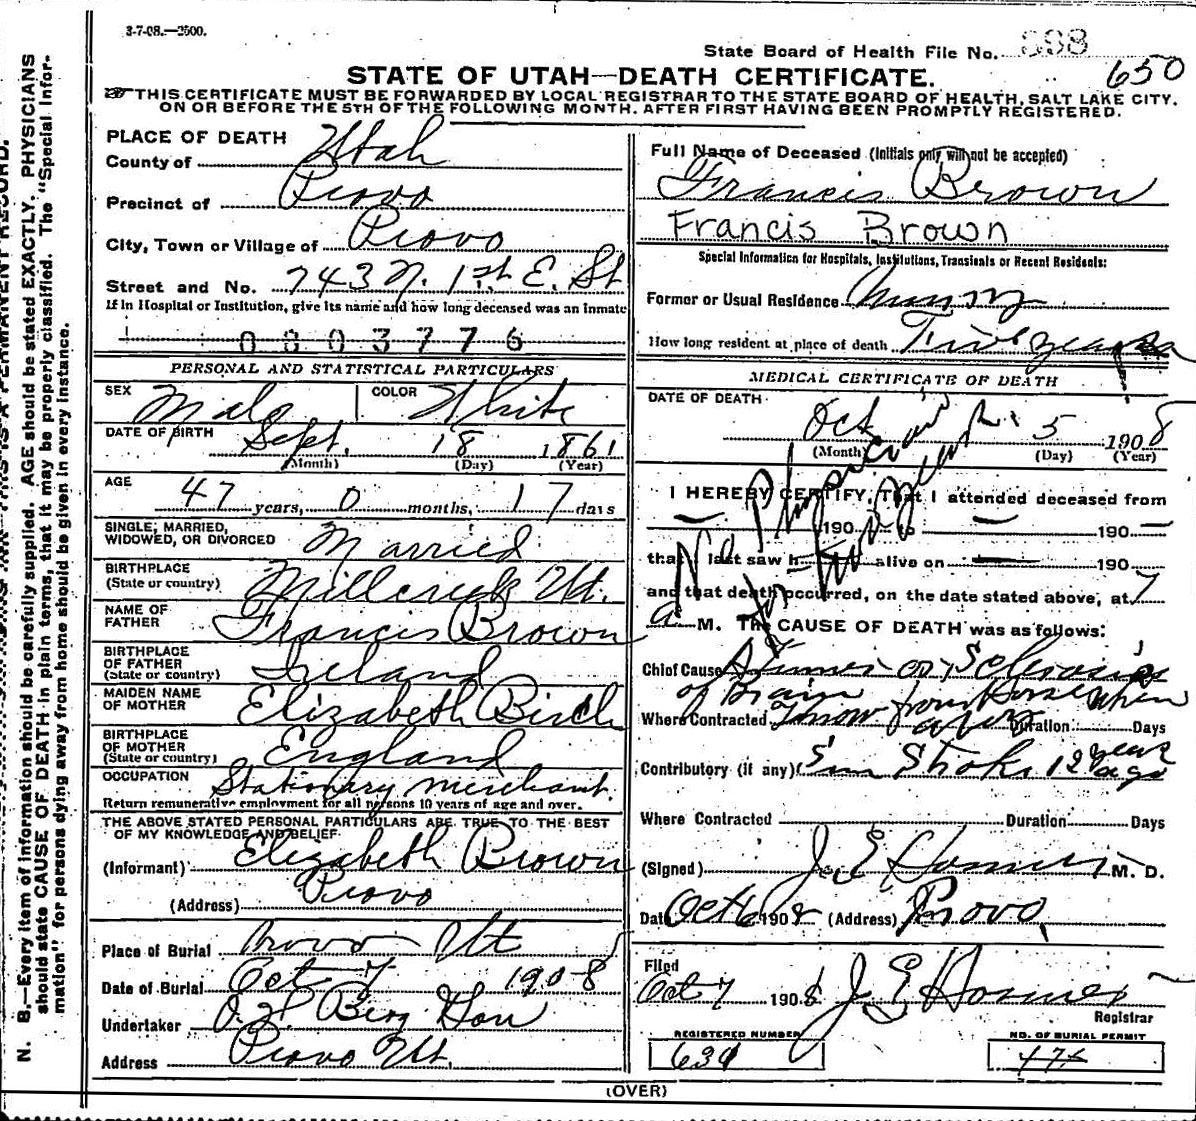 3-7-08.—2500.
State Board of Health File No. 888
650
STATE OF UTAH—DEATH CERTIFICATE.
THIS CERTIFICATE MUST BE FORWARDED BY LOCAL REGISTRAR TO THE STATE BOARD OF HEALTH, SALT LAKE CITY.
ON OR BEFORE THE 5TH OF THE FOLLOWING MONTH. AFTER FIRST HAVING BEEN PROMPTLY REGISTERED.
PLACE OF DEATH
County of Utah
Precinct of Provo
City, Town or Village of Provo
Street and No. 743 N. 1st. E. St
If in Hospital or Institution, give its name and how long deceased was an inmate
0803776
PERSONAL AND STATISTICAL PARTICULARS
SEX Male COLOR White
DATE OF BIRTH Sept. 18 1861
(Month) (Day) (Year)
AGE 47 years, 0 months, 17 days
SINGLE, MARRIED,
WIDOWED, OR DIVORCED Married
BIRTHPLACE
(State or country) Millcreek Ut.
NAME OF
FATHER Francis Brown
BIRTHPLACE
OF FATHER
(State or country) Ireland
MAIDEN NAME
OF MOTHER Elizabeth Birch
BIRTHPLACE
OF MOTHER
(State or country) England
OCCUPATION Stationary merchant.
Return remunerative employment for all persons 10 years of age and over.
THE ABOVE STATED PERSONAL PARTICULARS ARE TRUE TO THE BEST
OF MY KNOWLEDGE AND BELIEF
(Informant) Elizabeth Brown
(Address) Provo
Place of Burial Provo Ut
Date of Burial Oct 7 1908
Undertaker Berg Son
Address Provo Ut.
Full Name of Deceased (Initials only will not be accepted)
Francis Brown
Francis Brown
Special Information for Hospitals, Institutions, Transients or Recent Residents:
Former or Usual Residence
How long resident at place of death years
MEDICAL CERTIFICATE OF DEATH
DATE OF DEATH
Oct 5 1908
(Month) (Day) (Year)
No Physician for two years
I HEREBY CERTIFY, That I attended deceased from
190 to 190
that I last saw h alive on 190
and that death occurred, on the date stated above, at 7
a M. The CAUSE OF DEATH was as follows:
Chief Cause Tumor or Sclerosis
of Brain from Horse when
Where Contracted Throw Duration Days
Contributory (if any) Sun Stroke 12 years ago
Where Contracted Duration Days
(Signed) J E M. D.
Date Oct 6 1908 (Address) Provo
Filed
Oct 7 1908 J E
Registrar
REGISTERED NUMBER
NO. OF BURIAL PERMIT
(OVER)
N. B.—Every item of information should be carefully supplied. AGE should be stated EXACTLY. PHYSICIANS
should state CAUSE OF DEATH in plain terms, that it may be properly classified. The "Special Infor-
mation" for persons dying away from home should be given in every instance.